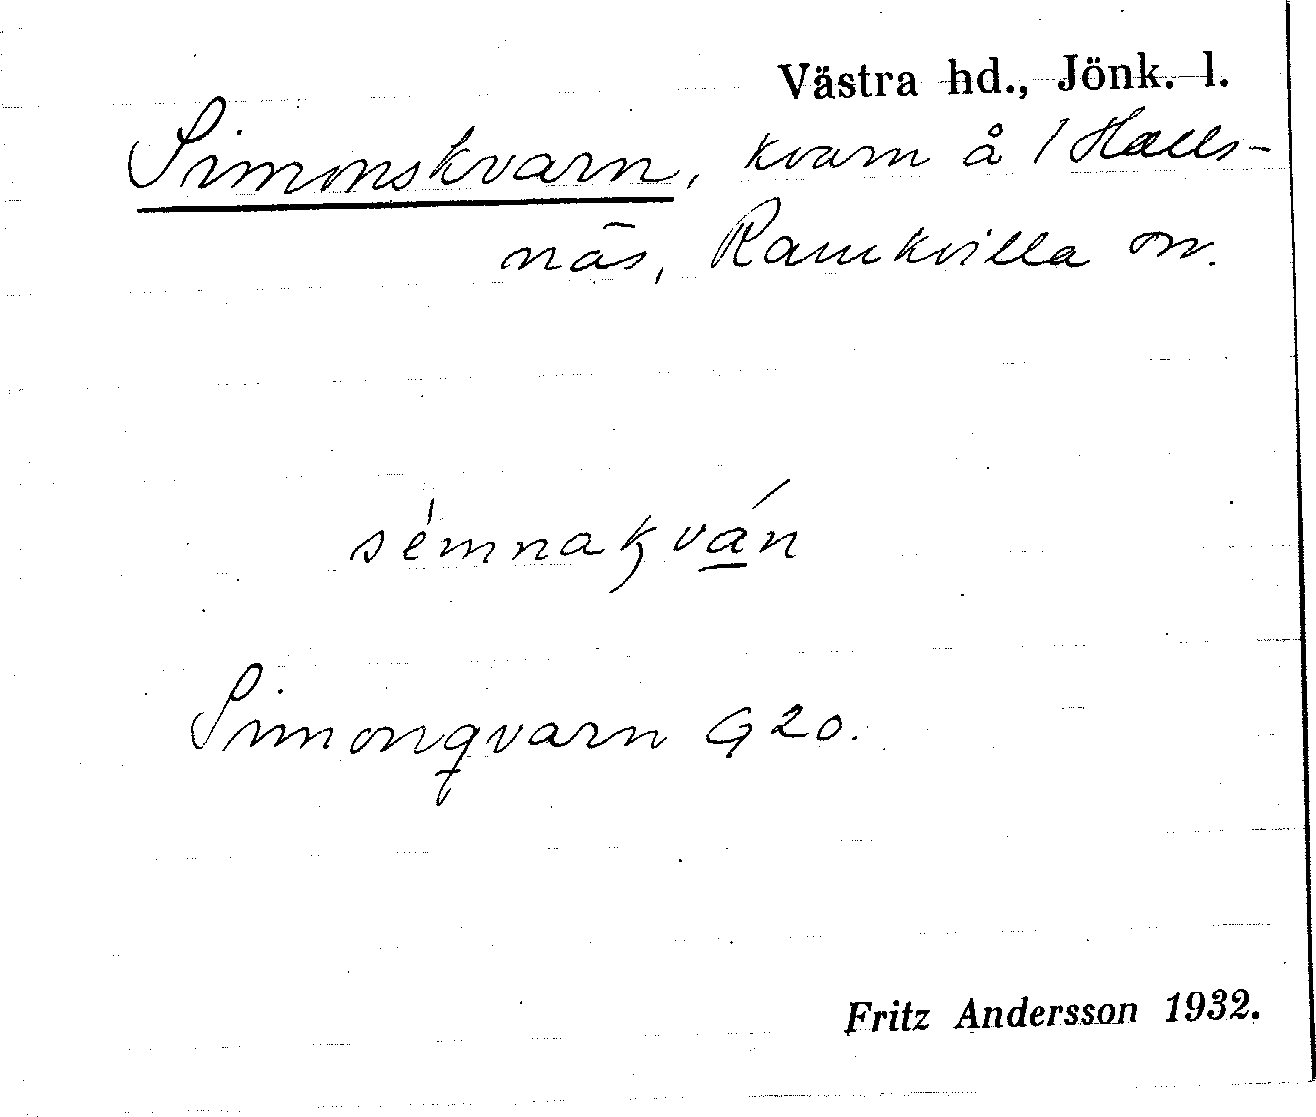 Västra hd., Jönk. l.
Simonskvarn, kvarn å 1 Halls-
näs, Ramkvilla sn.
sémnakván
Simonqvarn G 20.
Fritz Andersson 1932.